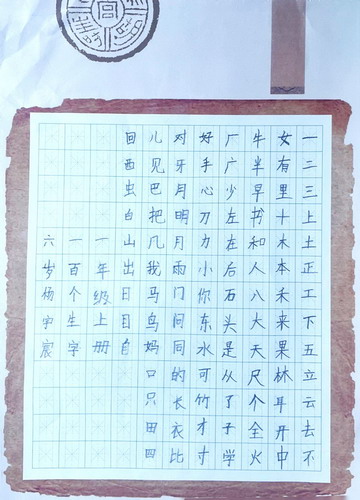 一二三上土正工下五立云去不
女有里十木本禾来果林耳开中
牛半早书和人八大天尺个全火
厂广少左在后石头是从了子学
好手心刀力小你东水可竹才寸
对牙月明月雨门问同的长衣比
儿见巴把几我马鸟妈口只田四
回西虫白山出日目自
一年级上册
一百个生字
六岁杨中宸